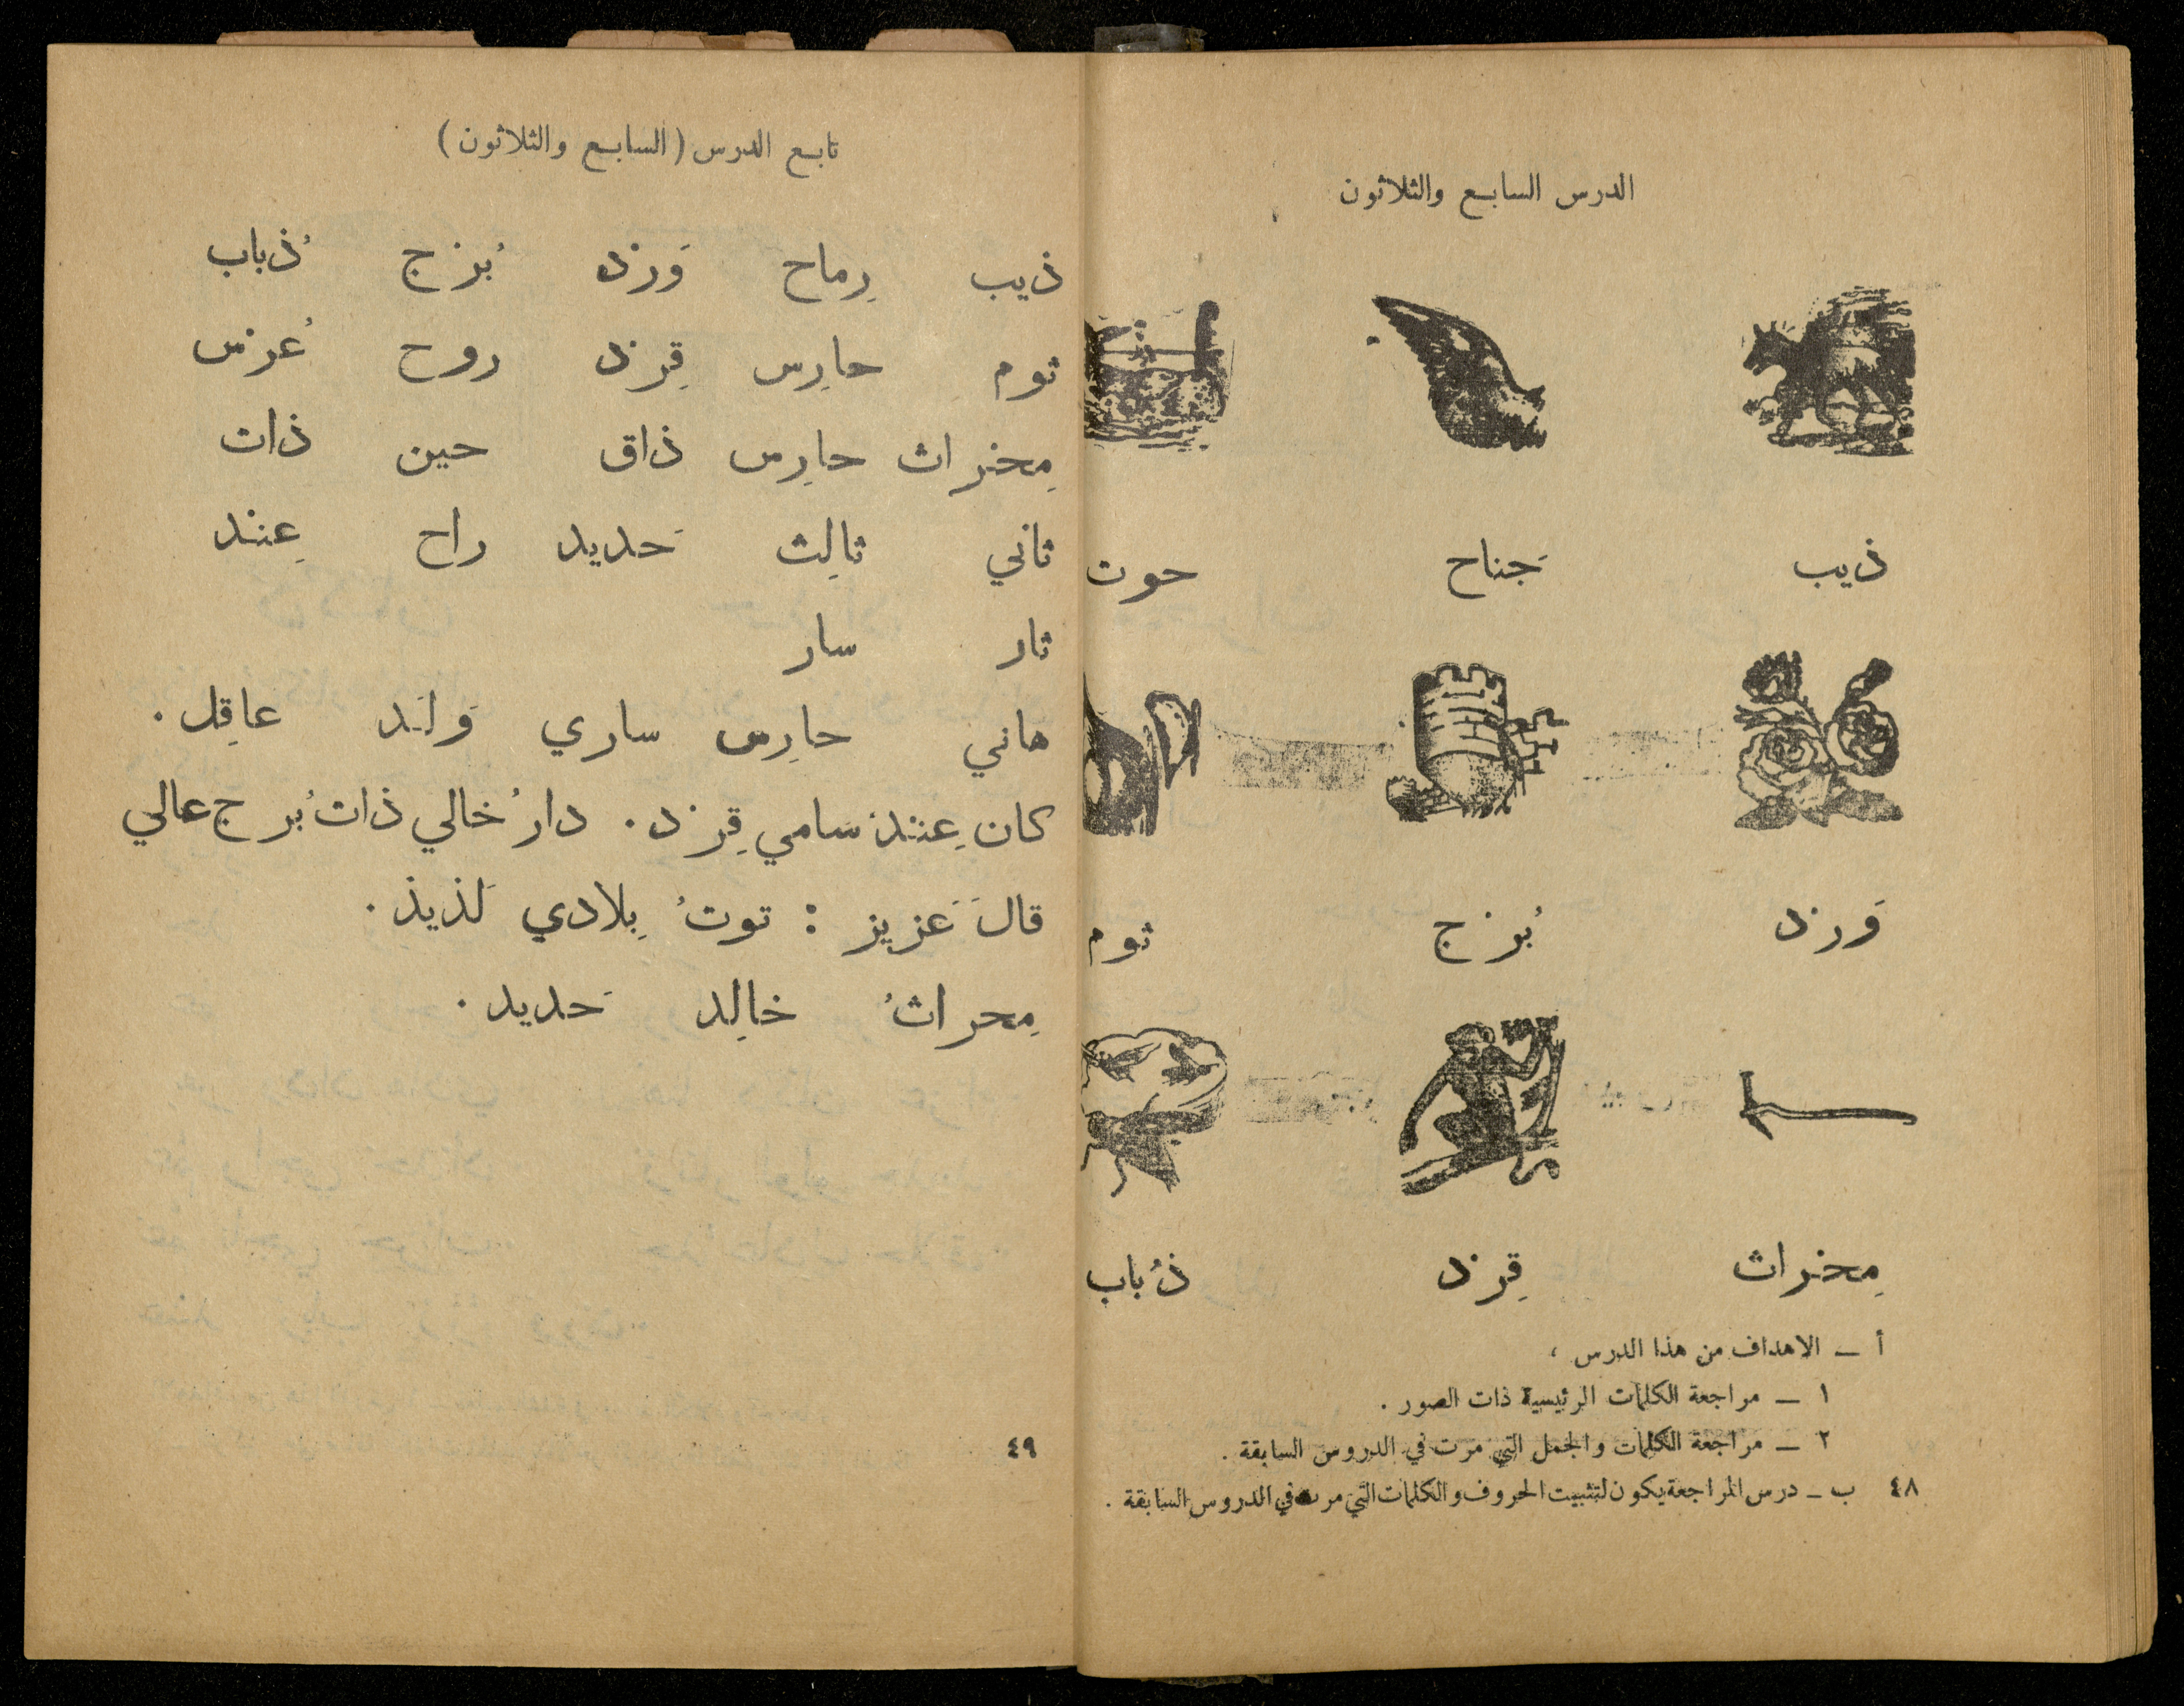 الدرس السابع والثلاثون
ذيب جَناح حوت
وَرْد بُرْج ثوم
مِحْراث قِرْد ذُباب
أ — الاهداف من هذا الدرس ،
١ — مراجعة الكلمات الرئيسية ذات الصور .
٢ — مراجعة الكلمات والجمل التي مرت في الدروس السابقة .
ب — درس المراجعة يكون لتثبيت الحروف والكلمات التي مرت في الدروس السابقة .
٤٨
تابع الدرس (السابع والثلاثون)
ذيب رِماح وَرْد بُرْج ذُباب
ثوم حارِس قِرْد روح عُرْس
مِحْراث حارِس ذاق حين ذات
ثاني ثالِث حَديد راح عِنْد
ثار سار
هاني حارِس ساري وَلَد عاقِل .
كان عِنْد سامي قِرْد . دارُ خالي ذات بُرج عالي
قالَ عَزيز : توتُ بِلادي لَذيذ .
مِحراثُ خالِد حَديد .
٤٩